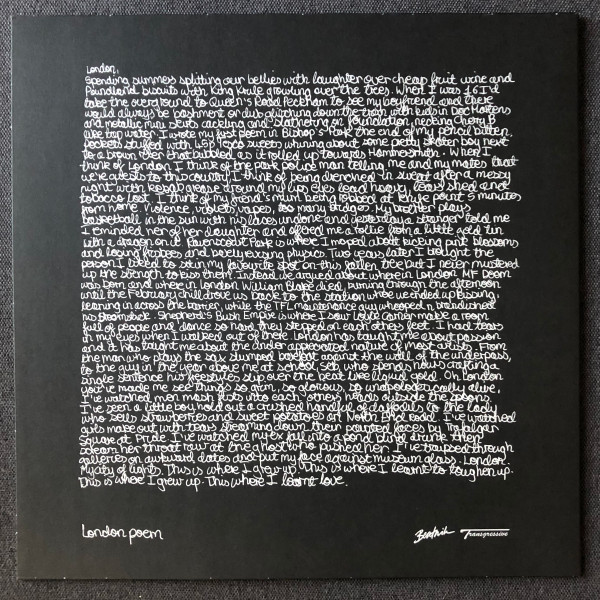 London,
Spending summers splitting our bellies with laughter over cheap fruit wine and
Poundland biscuits with King Krule growling over the trees. When I was 16 I'd
take the overground to Queen's Road Peckham to see my boyfriend and there
would always be bashment or dub glitching down the train with kids in Doc Martens
and metallic mini skirts cackling and slathering on foundation, necking Cherry B
like tap water. I wrote my first poem in Bishop's Park the end of my pencil bitten,
pockets stuffed with sweets whining about some petty skater boy next
to a brown river that bubbled as it rolled up towards Hammersmith. When I
think of London, I think of the park police man telling me and my mates that
we're guests to this country. I think of being drenched in sweat after a messy
night with kebab grease around my lips eyes lead heavy, tears shed and
tobacco lost. I think of my friend's mum being robbed at knife point 5 minutes
from home. Violence, violets, vapes, too many bridges. My brother plays
basketball in the sun with his laces undone and yesterday a stranger told me
I reminded her of her daughter and offered me a rollie from a little gold tin
with a dragon on it. Ravenscourt Park is where I moped about kicking pink blossoms
and loving frappes and barely passing physics. Two years later I brought the
person I liked to sit in my favourite spot on this fallen tree but I never mustered
up the strength to kiss them. Instead we argued about where in London MF Doom
was born and where in London William Blake died, burning through the afternoon
until the February chill drove us back to the station where we ended up kissing,
leaning in across the barrier, while the TFL maintenance guy whooped n brandished
his broomstick. Shepherd's Bush Empire is where I saw Loyle Carner make a room
full of people and dance so hard they stepped on each others feet. I had tears
in my eyes when I walked out of there. London has taught me about passion
and it has taught me about the under appreciated nature of most artists. From
the man who plays the sax slumped barefoot against the wall of the underpass,
to the guy in the year above me at school, Seb, who spends hours crafting a
single sentence his freestyles slip over the beat like liquid gold. Oh London
you've made me see things so grim, so glorious, so unapologetically alive,
I've watched men mash fists into each other's heads outside the spoons,
I've seen a little boy hold out a crushed handful of daffodils to the lady
who sells strawberries and sweet potatoes on North End Road. I've watched
guys make out with tears streaming down their painted faces by Trafalgar
Square at Pride. I've watched my ex fall into a pond blind drunk then
scream her throat raw at the ghost who pushed her. I've traipsed through
galleries on awkward dates and put my face against museum glass. London.
My city of lights. This is where I grew up. This is where I learnt to toughen up.
This is where I grew up. This where I learnt love.
London poem
Beatnik Transgressive